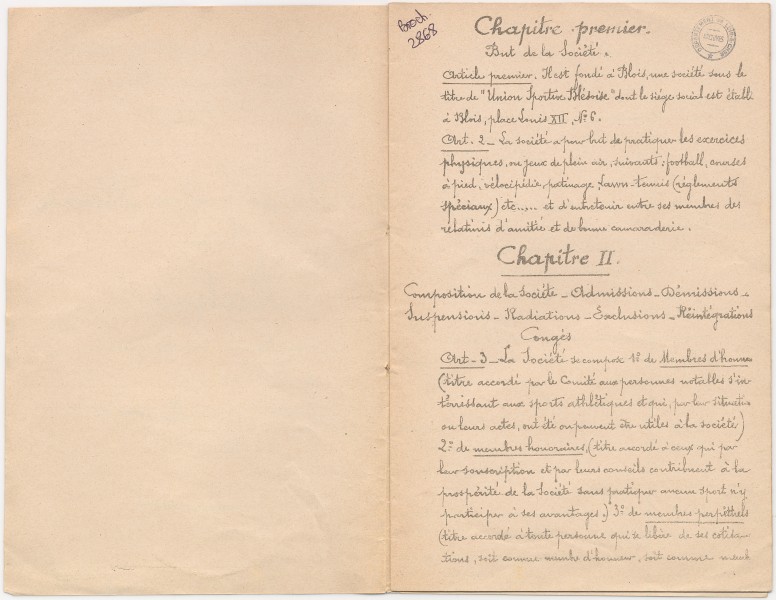 Broch
2868
Chapitre premier.
But de la Société.
Article premier. Il est fondé à Blois, une société sous le
titre de "Union Sportive Blésoise" dont le siège social est établi
à Blois, place Louis XII, N° 6.
Art. 2 - La société a pour but de pratiquer les exercices
physiques, ou jeux de plein air, suivants: football, courses
à pied, vélocipédie, patinage, Lawn-tennis (règlements
spéciaux) etc..... et d'entretenir entre ses membres des
relations d'amitié et de bonne camaraderie.
Chapitre II.
Composition de la Société - Admissions - Démissions -
Suspensions - Radiations - Exclusions - Réintégrations
Congés
Art - 3 - La Société se compose 1° de Membres d'honneur
(titre accordé par le Comité aux personnes notables s'in-
téressant aux sports athlétiques et qui, par leur situation
ou leurs actes, ont été ou peuvent être utiles à la société)
2° de membres honoraires, (titre accordé à ceux qui par
leur souscription et par leurs conseils contribuent à la
prospérité de la Société sans pratiquer aucun sport n'y
participer à ses avantages.) 3° de membres perpétuels
(titre accordé à toute personne qui se libère de ses cotisa-
tions, soit comme membre d'honneur, soit comme memb